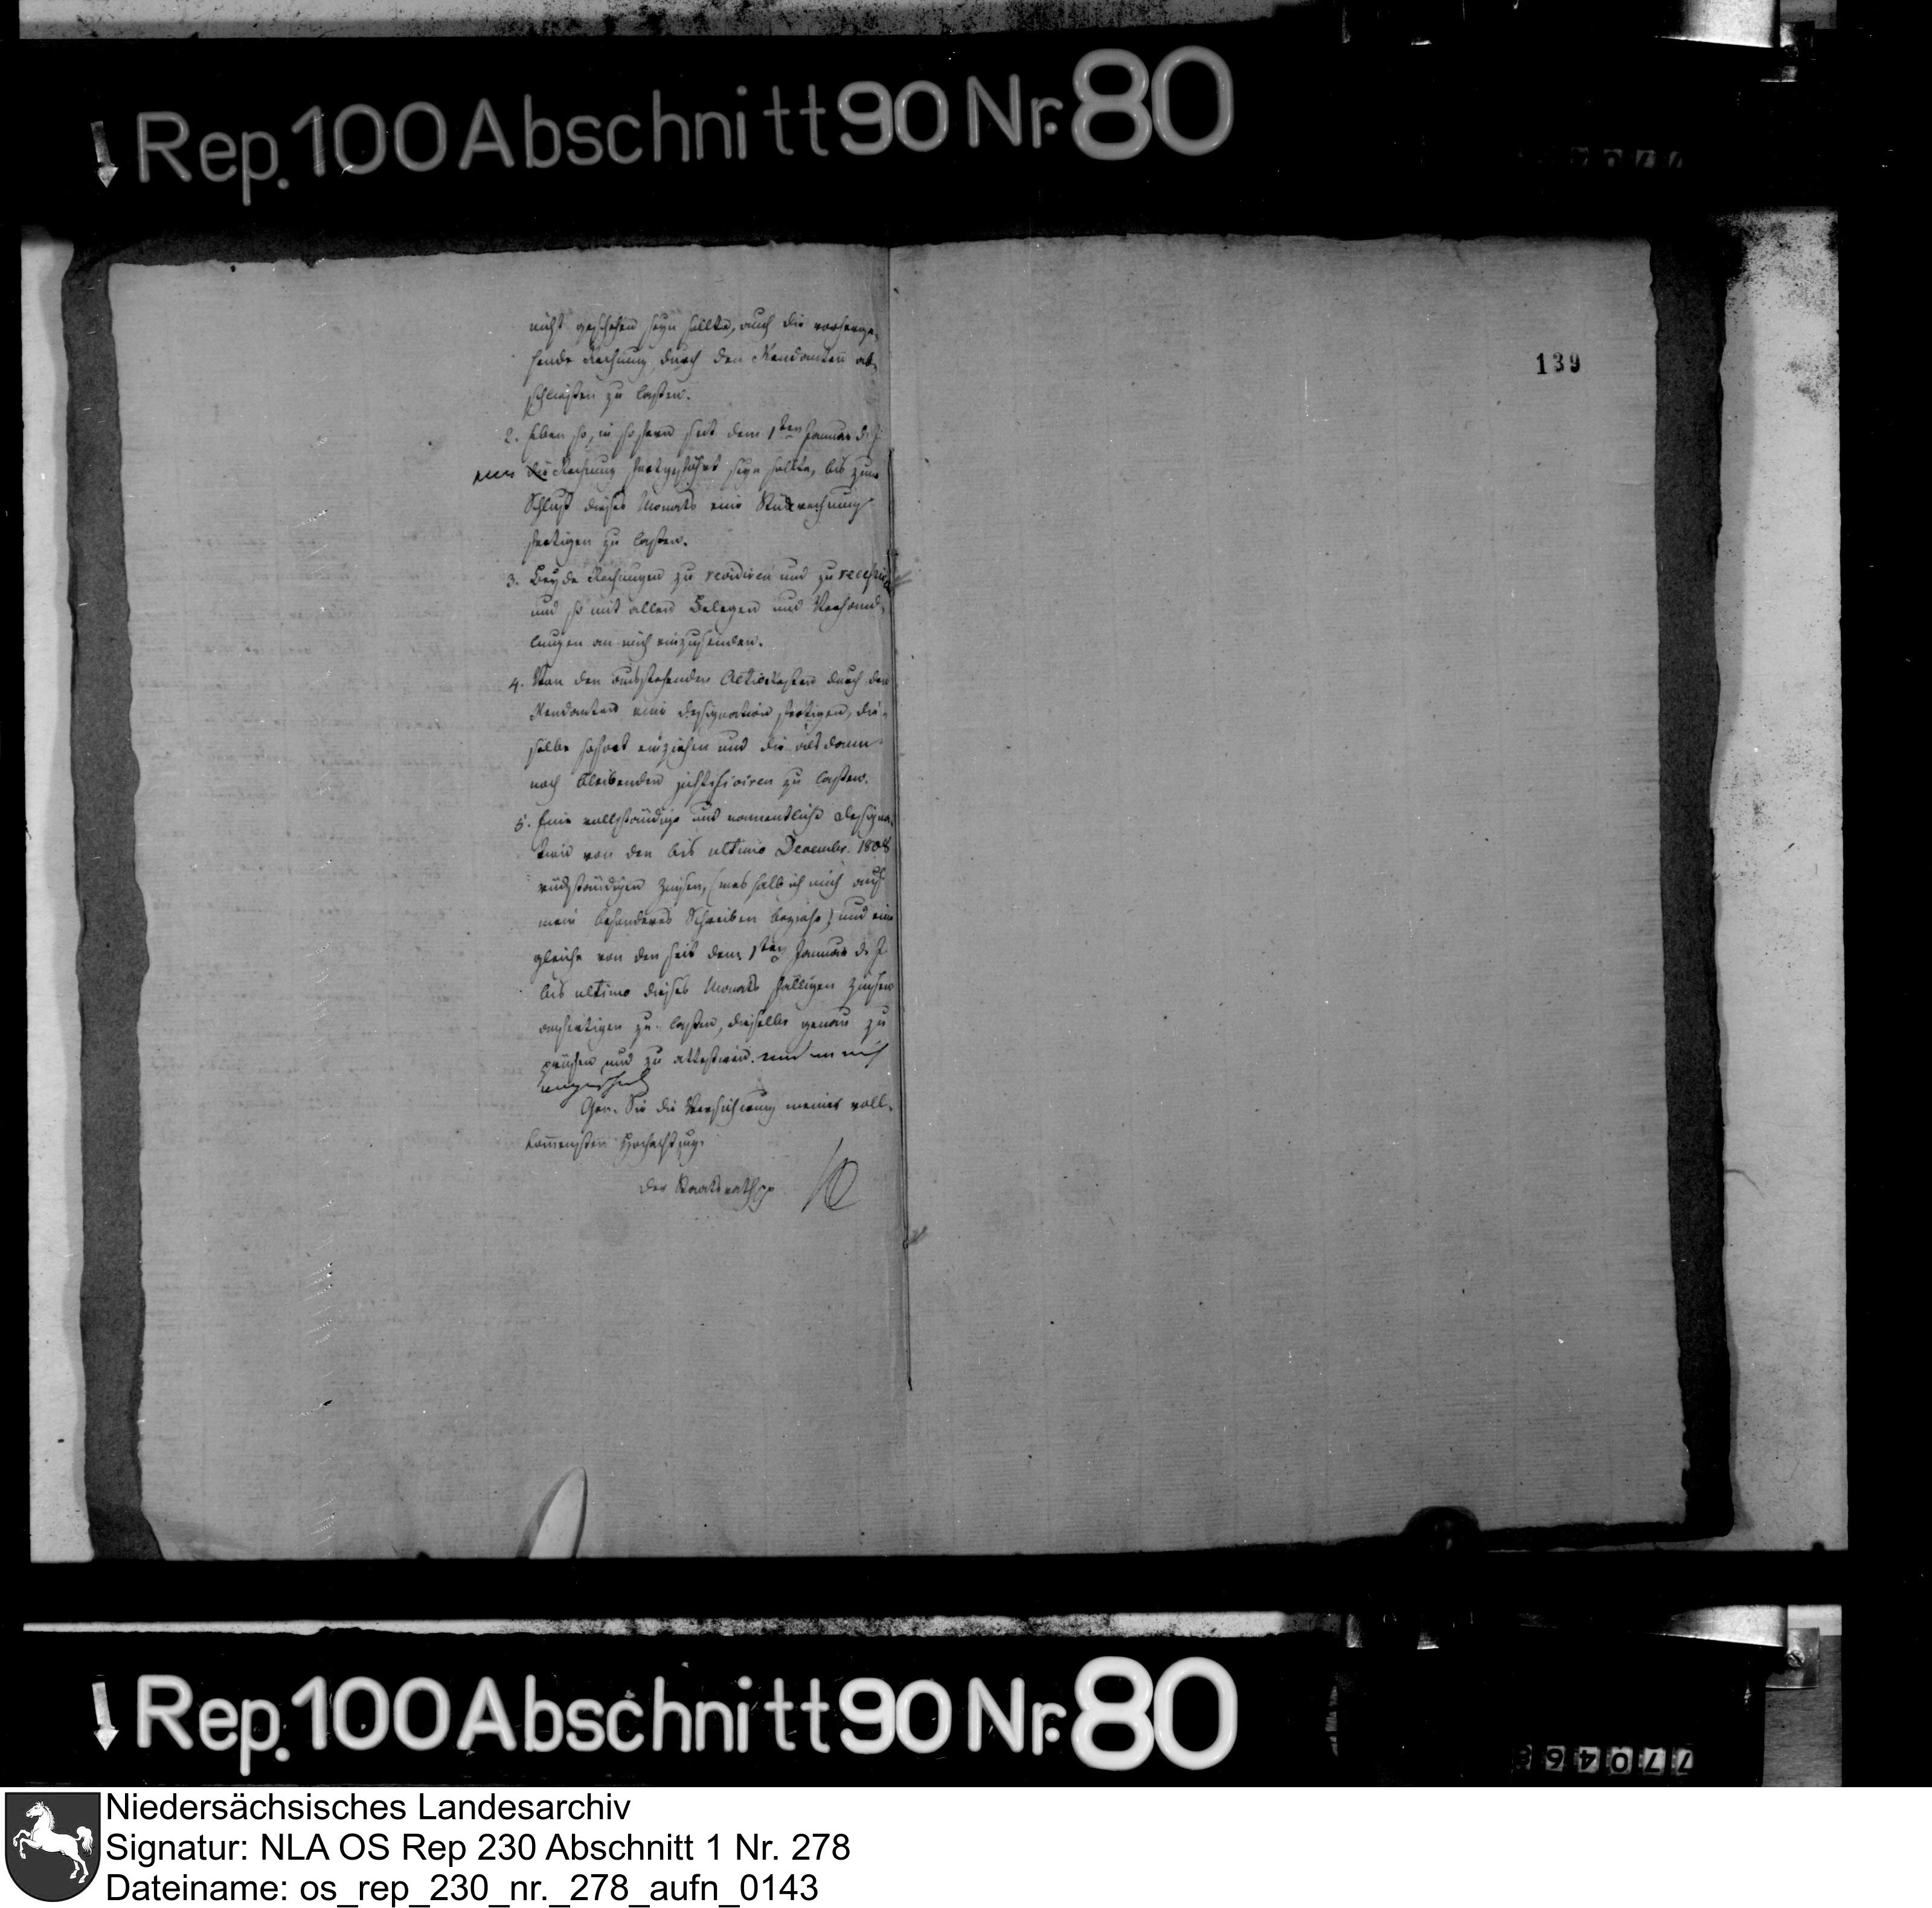 Rep. 100 Abschnitt 90 Nr. 80
nicht geschehen seyn sollte, auch die vorherge-
hende Rechnung durch den Rendanten ab-
schließen zu laßen.
2. Eben so, in sofern seit dem 1ten Januar d. J.
die Rechnung fortgeführt seyn sollte, bis zum
Schluß dieses Monats eine Rechnung
fertigen zu laßen.
3. Beyde Rechnungen zu revidiren und zu
und so mit allen Belegen und Verhand-
lungen an mich einzusenden.
4. Von den ausstehenden Activresten durch den
Rendanten eine Designation fertigen, die-
selbe sofort einziehen und die alsdann
noch bleibenden justificiren zu laßen.
5. Eine vollständige und namentliche Designa-
tion von den bis ultimo December 1808
rückständigen Zinsen, (weshalb ich mich auf
mein besonderes Schreiben beziehe) und eine
gleiche von den seit dem 1ten Januar d. J.
bis ultimo dieses Monats fälligen Zinsen
anfertigen zu laßen, dieselbe genau zu
prüfen und zu attestiren
Gen. Sie die Versicherung meiner voll-
kommensten Hochachtung.
Der Staatsrath
139
Rep. 100 Abschnitt 90 Nr. 80
Niedersächsisches Landesarchiv
Signatur: NLA OS Rep 230 Abschnitt 1 Nr. 278
Dateiname: os_rep_230_nr._278_aufn_0143